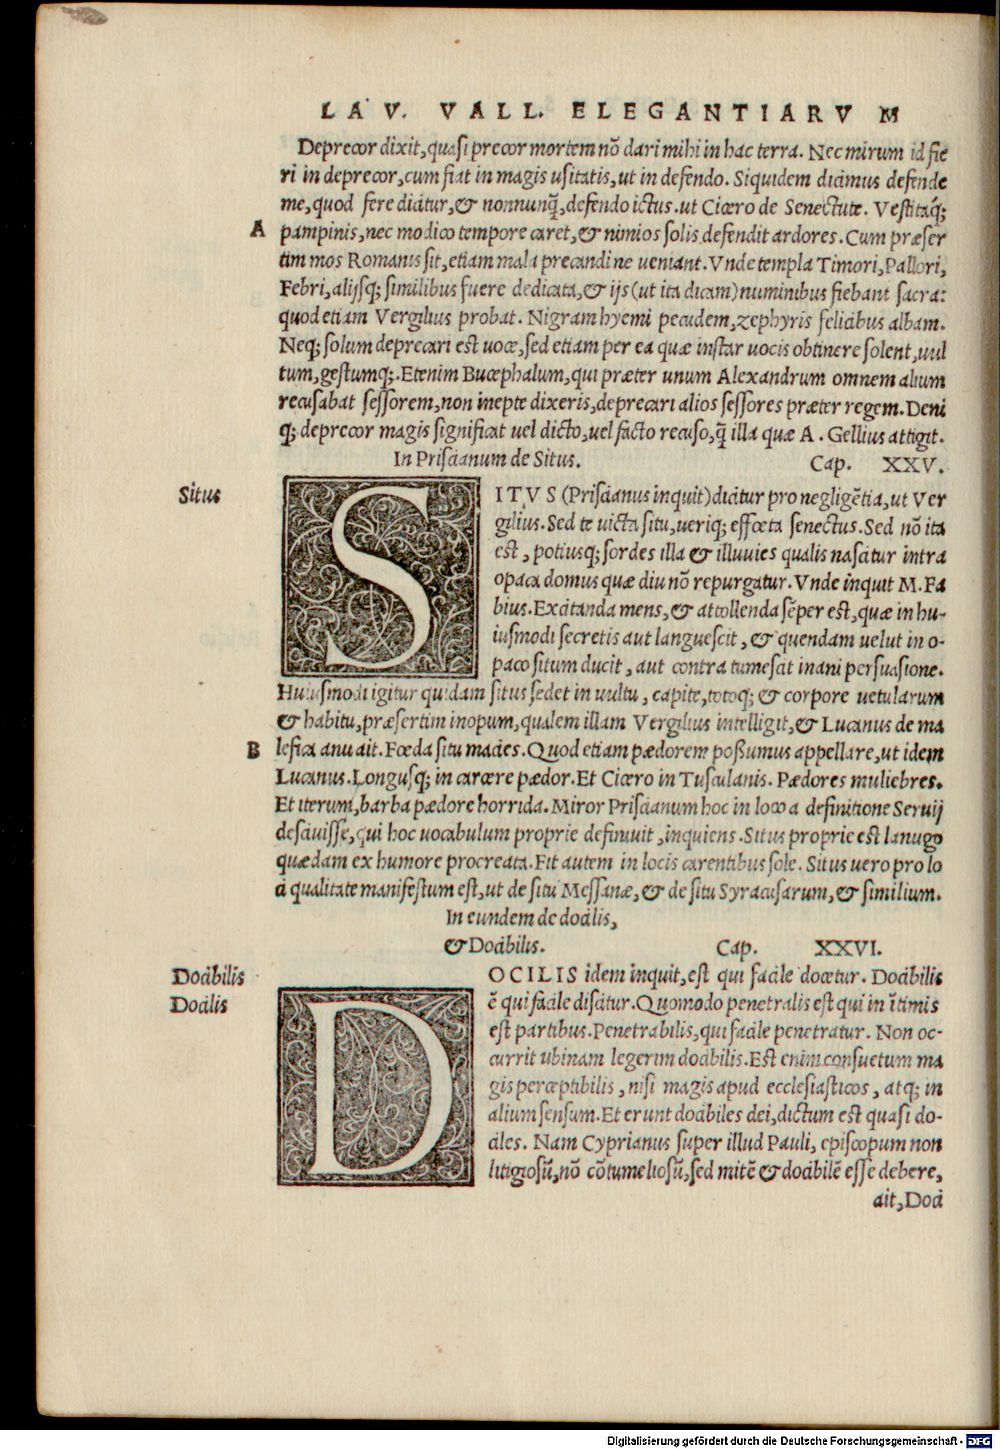 LAV. VALL. ELEGANTIARVM
Deprecor dixit, quasi precor mortem nõ dari mihi in hac terra. Nec mirum id fie
ri in deprecor, cum fiat in magis usitatis, ut in defendo. Siquidem dicimus defende
me, quod fere dicitur, & nonnunq̃, defendo ictus. ut Cicero de Senectute. Vestitaq́;
A
pampinis, nec modico tempore caret, & nimios solis defendit ardores. Cum præser
tim mos Romanis sit, etiam mala precandi ne ueniant. Vnde templa Timori, Pallori,
Febri, alijsq; similibus fuere dedicata, & ijs (ut ita dicam) numinibus fiebant sacra:
quod etiam Vergilius probat. Nigram hyemi pecudem, zephyris felicibus albam.
Neq; solum deprecari est uoce, sed etiam per ea quæ instar uocis obtinere solent, uul
tum, gestumq;. Etenim Bucephalum, qui præter unum Alexandrum omnem alium
recusabat sessorem, non inepte dixeris, deprecari alios sessores præter regem. Deni
q; deprecor magis significat uel dicto, uel facto recuso, q̃ illa quæ A. Gellius attigit.
In Priscianum de Situs. Cap. XXV.
Situs
SITVS (Priscianus inquit) dicitur pro negligẽtia, ut Ver
gilius. Sed te uicta situ, ueriq; effœta senectus. Sed nõ ita
est, potiusq; sordes illa & illuuies qualis nascitur intra
opaca domus quæ diu nõ repurgatur. Vnde inquit M. Fa
bius. Excitanda mens, & attollenda sẽper est, quæ in hu-
iusmodi secretis aut languescit, & quendam uelut in o-
paco situm ducit, aut contra tumescit inani persuasione.
Huiusmodi igitur quidam situs sedet in uultu, capite, totoq; & corpore uetularum
& habitu, præsertim inopum, qualem illam Vergilius intelligit, & Lucanus de ma
B
lefica anu ait. Fœda situ macies. Quod etiam pædorem possumus appellare, ut idem
Lucanus. Longusq; in carcere pædor. Et Cicero in Tusculanis. Pædores muliebres.
Et iterum, barba pædore horrida. Miror Priscianum hoc in loco a definitione Seruij
desciuisse, qui hoc uocabulum proprie definiuit, inquiens. Situs proprie est lanugo
quædam ex humore procreata. Fit autem in locis carentibus sole. Situs uero pro lo
ci qualitate manifestum est, ut de situ Messanæ, & de situ Syracusarum, & similium.
In eundem de docilis,
& Docibilis. Cap. XXVI.
Docibilis
Docilis
DOCILIS idem inquit, est qui facile docetur. Docibilis
ẽ qui facile discitur. Quomodo penetralis est qui in ĩtimis
est partibus. Penetrabilis, qui facile penetratur. Non oc-
currit ubinam legerim docibilis. Est enim consuetum ma
gis perceptibilis, nisi magis apud ecclesiasticos, atq; in
alium sensum. Et erunt docibiles dei, dictum est quasi do-
ciles. Nam Cyprianus super illud Pauli, episcopum non
litigiosũ, nõ cõtumeliosũ, sed mitẽ & docibilẽ esse debere,
ait, Doci
Digitalisierung gefördert durch die Deutsche Forschungsgemeinschaft - DFG